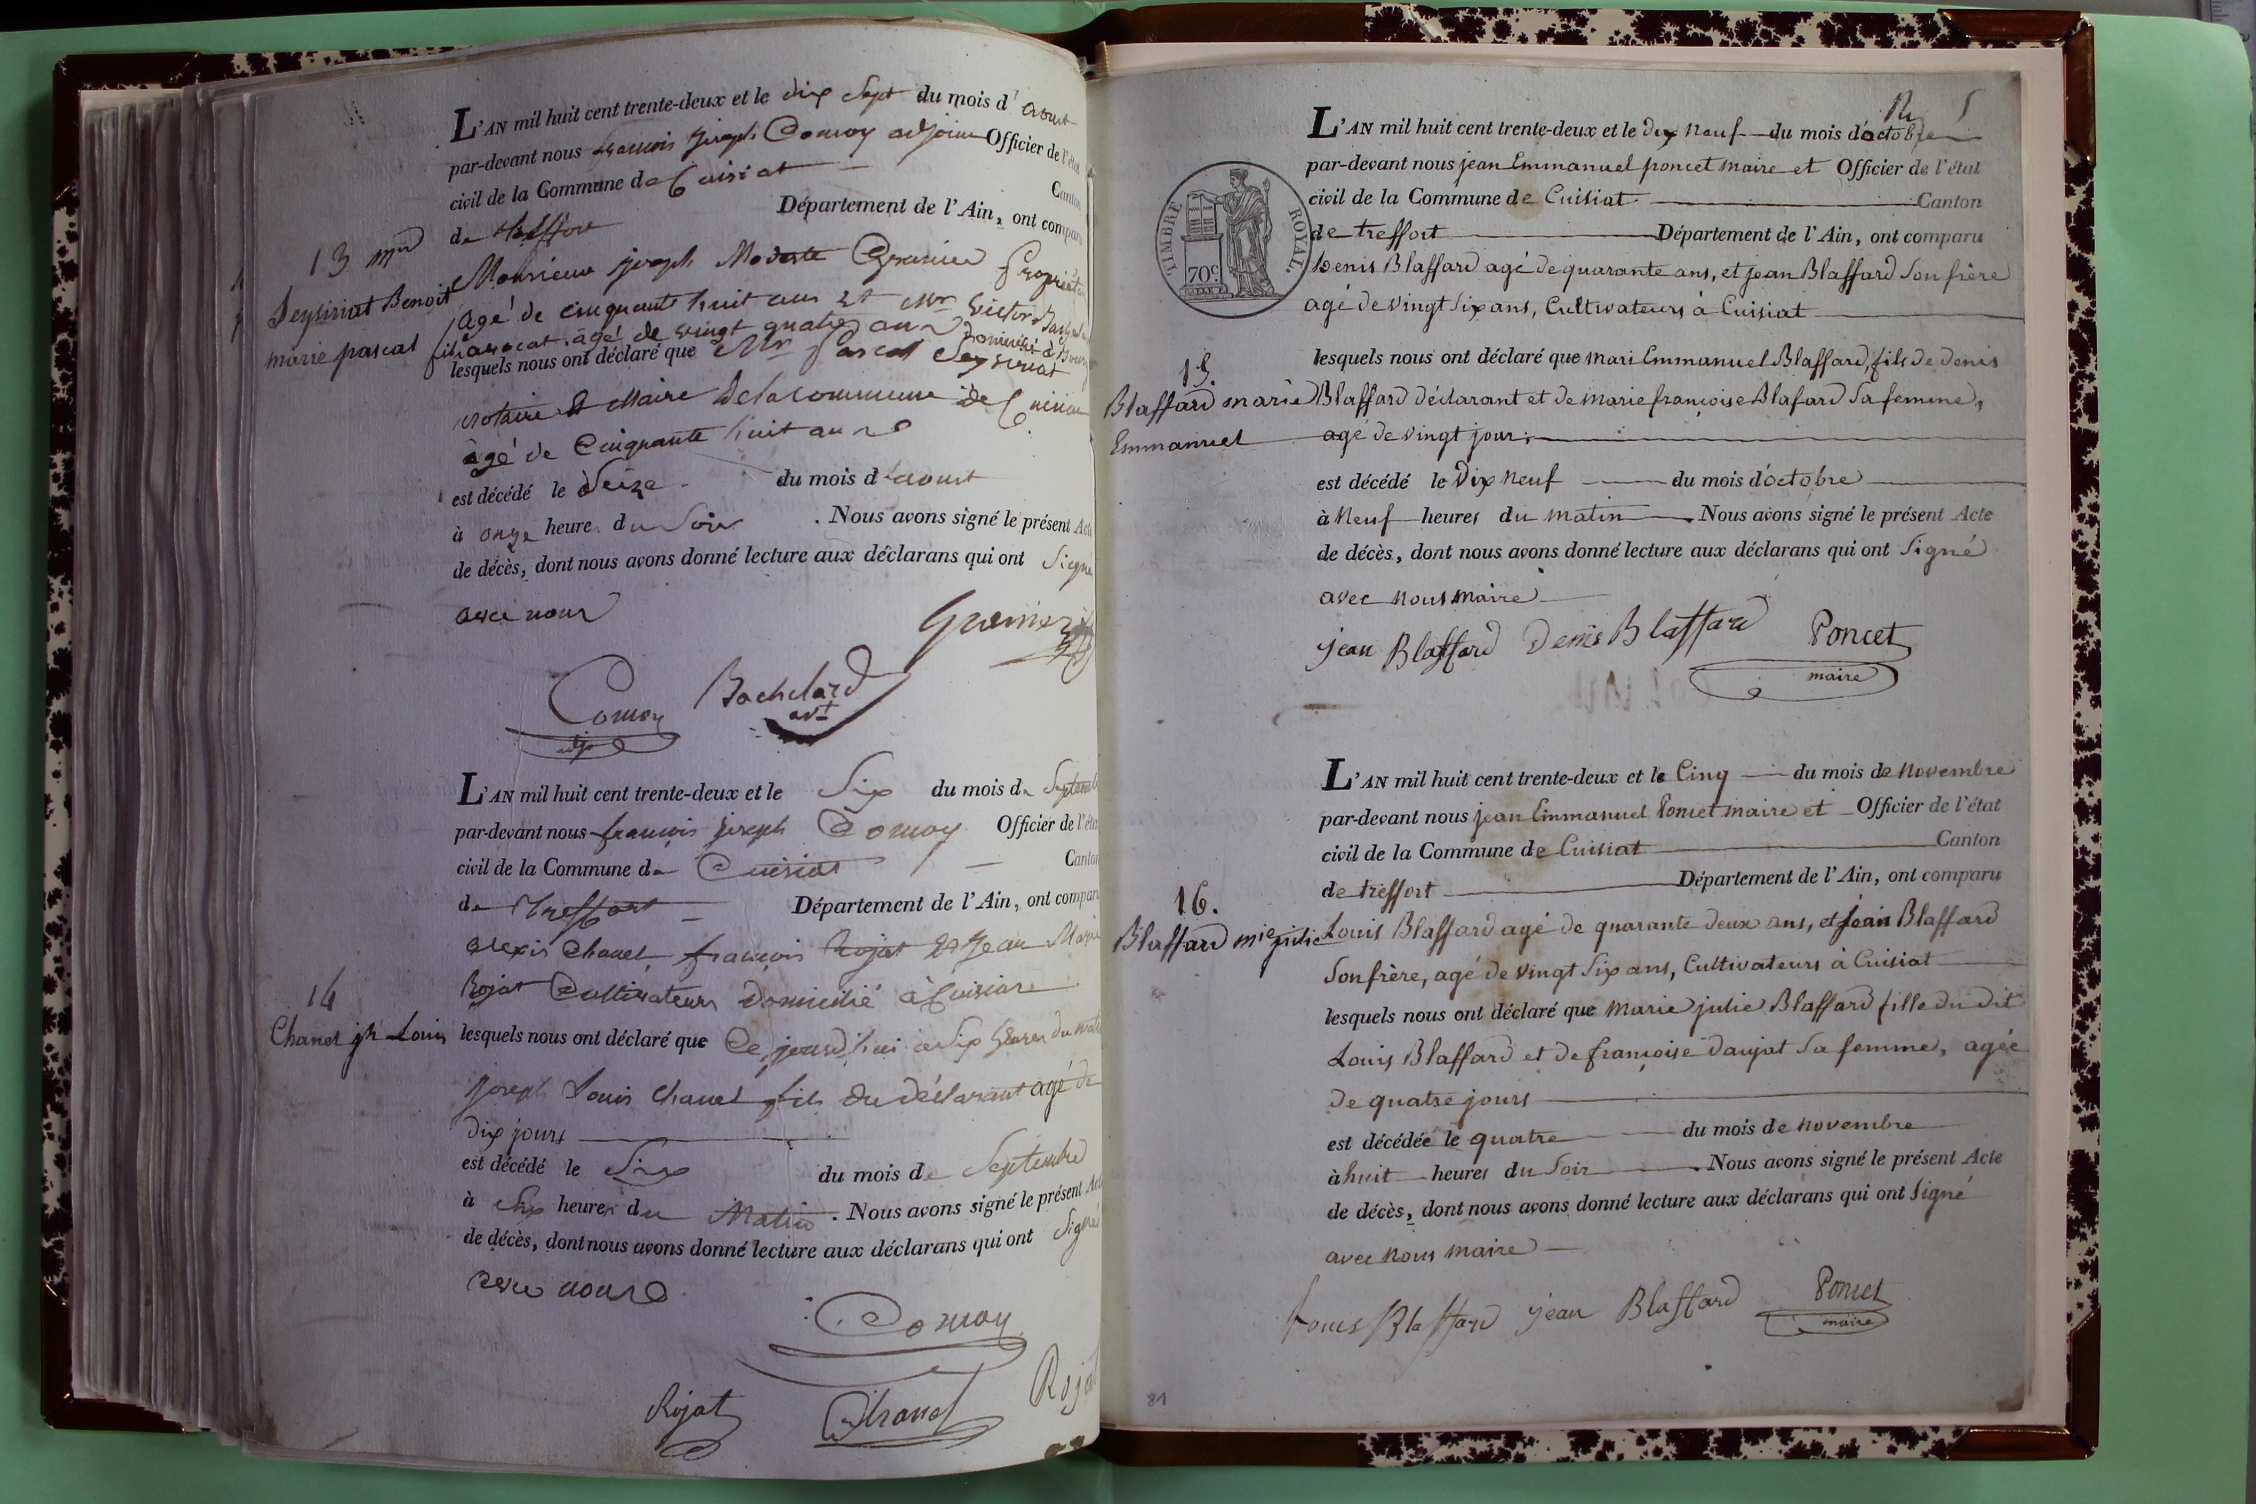 L'AN mil huit cent trente-deux et le dix Sept du mois d' aoust
par-devant nous françois joseph Comoy adjoint Officier de l'état
civil de la Commune de Cuisiat Canton
de treffort Département de l'Ain, ont comparu
13
Monsieur joseph Modeste Grenier propriétaire
Seysiriat Benoit
agé de cinquante huit ans et Mr Victor
marie pascal
avocat agé de vingt quatre ans Domicilié à
lesquels nous ont déclaré que Mr Pascal Seysiriat
notaire et Maire de la commune de Cuisiat
âgé de Cinquante huit ans
est décédé le Seize du mois d'aoust
à onze heure du Soir. Nous avons signé le présent Acte
de décès, dont nous avons donné lecture aux déclarans qui ont Signé
avec nous
Grenier
Comoy Bachelard
adj avt
L'AN mil huit cent trente-deux et le Six du mois de Septembre
par-devant nous françois joseph Comoy Officier de l'état
civil de la Commune de Cuisiat Canton
de Treffort Département de l'Ain, ont comparu
alexis Chanel françois Rojat et Jean Marie
Rojat Cultivateurs Domicilié à Cuisiat
14
Chanel jh Louis
lesquels nous ont déclaré que Ce jourd'hui a Six heures du matin
joseph Louis Chanel fils du déclarant agé de
dix jours
est décédé le Six du mois de Septembre
à Six heures du Matin. Nous avons signé le présent Acte
de décès, dont nous avons donné lecture aux déclarans qui ont Signé
avec nous
Comoy
Rojat Chanel Rojat
5
L'AN mil huit cent trente-deux et le Dix Neuf du mois d'octobre
par-devant nous jean Emmanuel poncet maire et Officier de l'état
civil de la Commune de Cuisiat Canton
de treffort Département de l'Ain, ont comparu
TIMBRE ROYAL.
70c
Denis Blaffard agé de quarante ans, et jean Blaffard Son frère
agé de vingt Six ans, Cultivateurs à Cuisiat
15.
lesquels nous ont déclaré que mari Emmanuel Blaffard, fils de denis
Blaffard marie
Blaffard déclarant et de marie françoise Blafard Sa femme,
Emmanuel
agé de vingt jour;
est décédé le Dix Neuf du mois d'octobre
à Neuf heures du matin. Nous avons signé le présent Acte
de décès, dont nous avons donné lecture aux déclarans qui ont Signé
avec nous maire
jean Blaffard Denis Blaffard Poncet
maire
L'AN mil huit cent trente-deux et le Cinq du mois de Novembre
par-devant nous jean Emmanuel Poncet maire et Officier de l'état
civil de la Commune de Cuisiat Canton
de treffort Département de l'Ain, ont comparu
16.
Blaffard mie julie
Louis Blaffard agé de quarante deux ans, et jean Blaffard
Son frère, agé de vingt Six ans, Cultivateurs à Cuisiat
lesquels nous ont déclaré que marie julie Blaffard fille du dit
Louis Blaffard et de françoise daujat Sa femme, agée
de quatre jours
est décédée le quatre du mois de novembre
à huit heures du Soir. Nous avons signé le présent Acte
de décès, dont nous avons donné lecture aux déclarans qui ont Signé
avec nous maire
Louis Blaffard jean Blaffard Poncet
maire
81